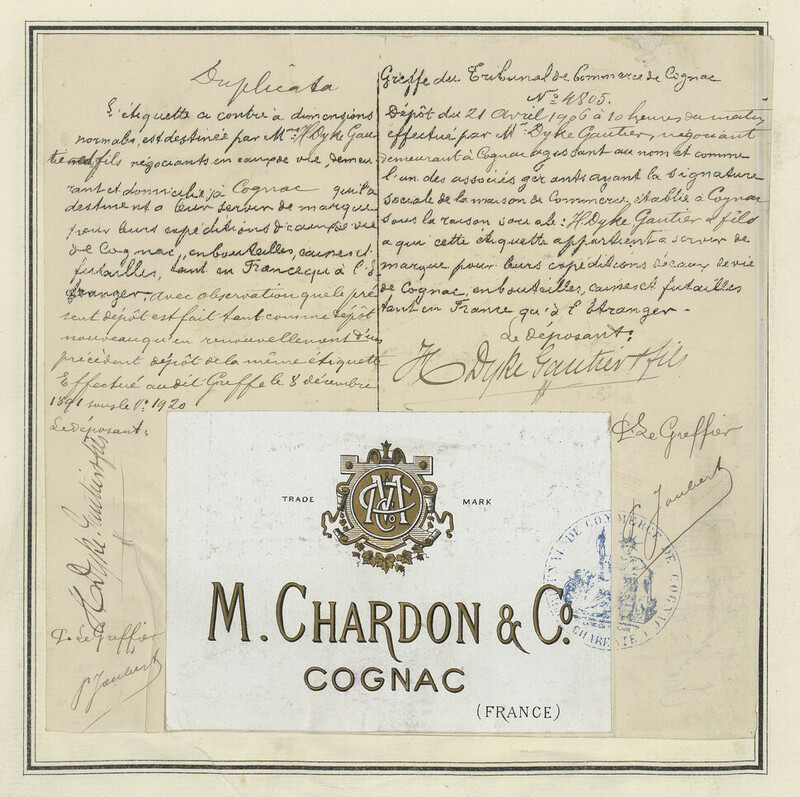 Duplicata
L'étiquette ci contre à dimensions
normales, est destinée par Mrs H. Dyke Gau-
tier & fils négociants en eaux de vie, demeu-
rant et domiciliés à Cognac qu'ils
destinent a leur servir de marque
pour leurs expéditions d'eaux de vie
de Cognac, en bouteilles, caisses et
futailles, tant en France qu'à l'É-
tranger, avec observation que le pré-
sent dépôt est fait tant comme dépôt
nouveau qu'en renouvellement d'un
précédent dépôt de la même étiquette
Effectué au dit Greffe le 8 décembre
1891 sous le No. 1920
Le déposant:
H Dyke Gautier & fils
P. Le Greffier
P Joubert
Greffe du Tribunal de Commerce de Cognac
No 4805.
Dépôt du 21 Avril 1906 à 10 heures du matin
effectué par Mr Dyke Gautier, négociant
demeurant à Cognac agissant au nom et comme
l'un des associés gérants ayant la signature
sociale de la maison de Commerce, établie à Cognac
sous la raison sociale: H. Dyke Gautier & fils
a qui cette étiquette appartient a servir de
marque pour leurs expéditions d'eaux de vie
de Cognac, en bouteilles, caisses et futailles
tant en France qu'à l'Étranger.
Le déposant:
H Dyke Gautier & fils
P. Le Greffier
Joubert
TRADE MARK
MC Co
M. CHARDON & Co
COGNAC
(FRANCE)
TRIBUNAL DE COMMERCE DE COGNAC
CHARENTE